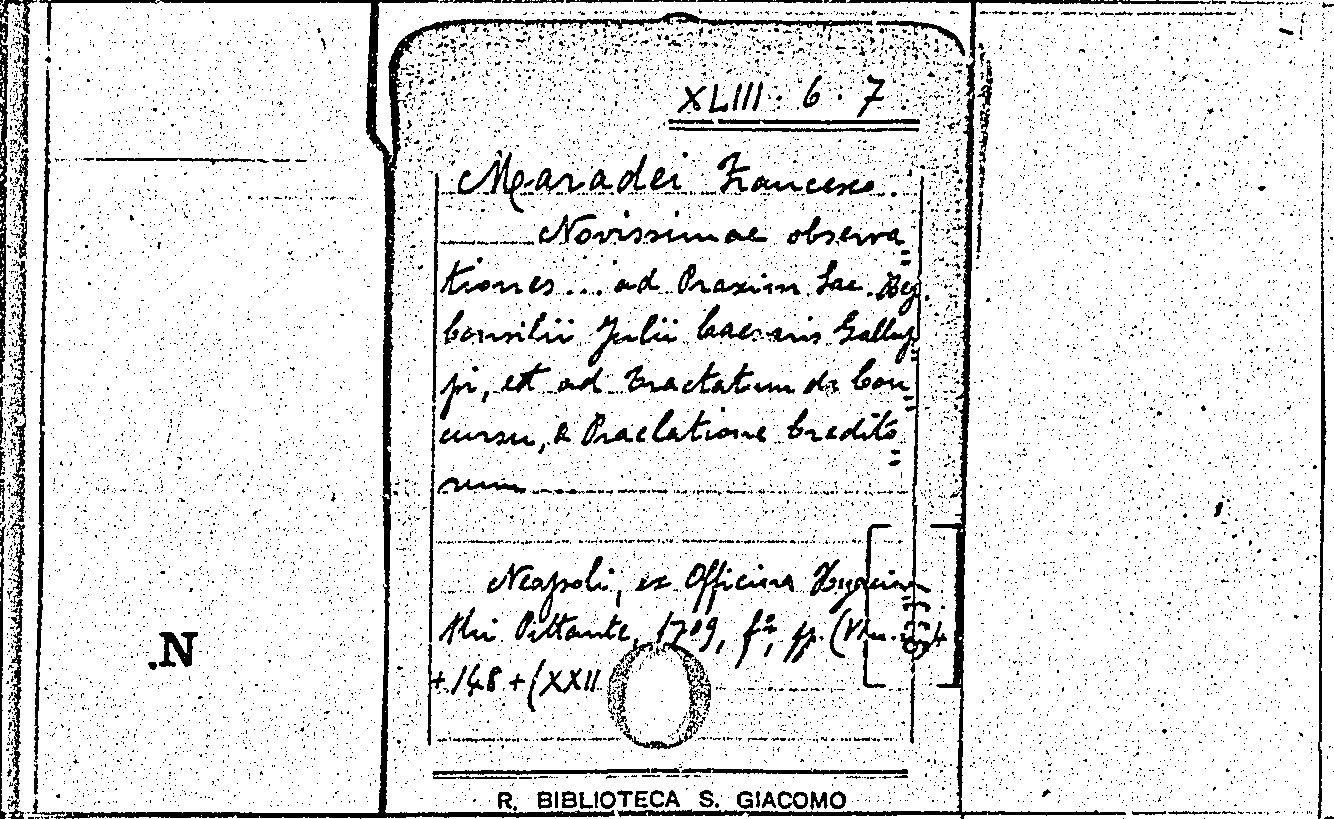 XLIII. 6. 7.
Maradei Francesco.
Novissimae observa=
tiones... ad Praxim Sac. Reg.
Consilii Julii Caesaris Gallup=
pi, et ad Tractatum de Con=
cursu, & Praelatione Credito=
rum...
Neapoli, ex Officina
Pittante, 1709, f.º, pp.
+ 148 + (XXII
.N
R. BIBLIOTECA S. GIACOMO